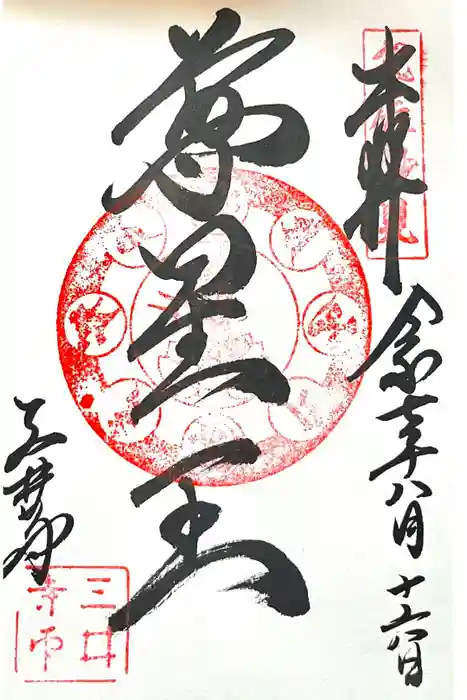 奉拝
令和七年八月十六日
尊星王
三井寺
三井寺印